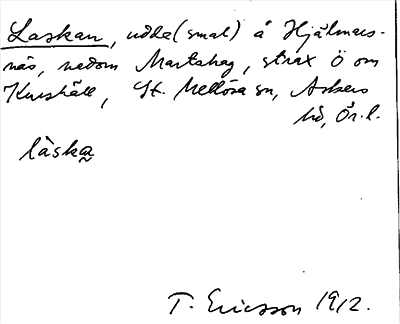 Laskan, udde (smal) å Hjälmars-
näs, nedom Martahag, strax Ö om
Knushäll, St. Mellösa sn, Askers
hd, Ör. l.
làska
T. Ericsson 1912.